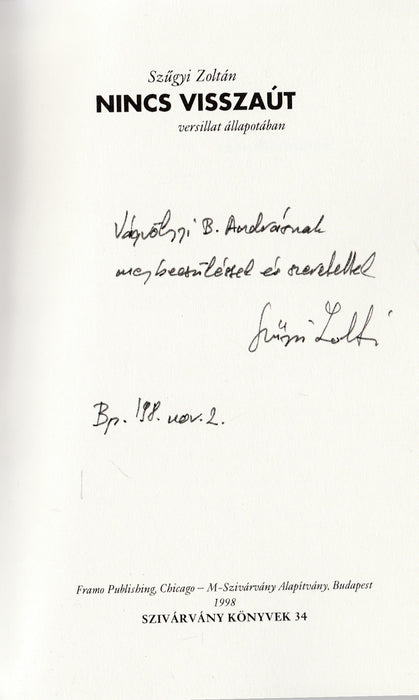 Szűgyi Zoltán
NINCS VISSZAÚT
versillat állapotában
Vágvölgyi B. Andrásnak
megbecsüléssel és szeretettel
Szűgyi Zoltán
Bp. '98. nov. 2.
Framo Publishing, Chicago – M-Szivárvány Alapítvány, Budapest
1998
SZIVÁRVÁNY KÖNYVEK 34